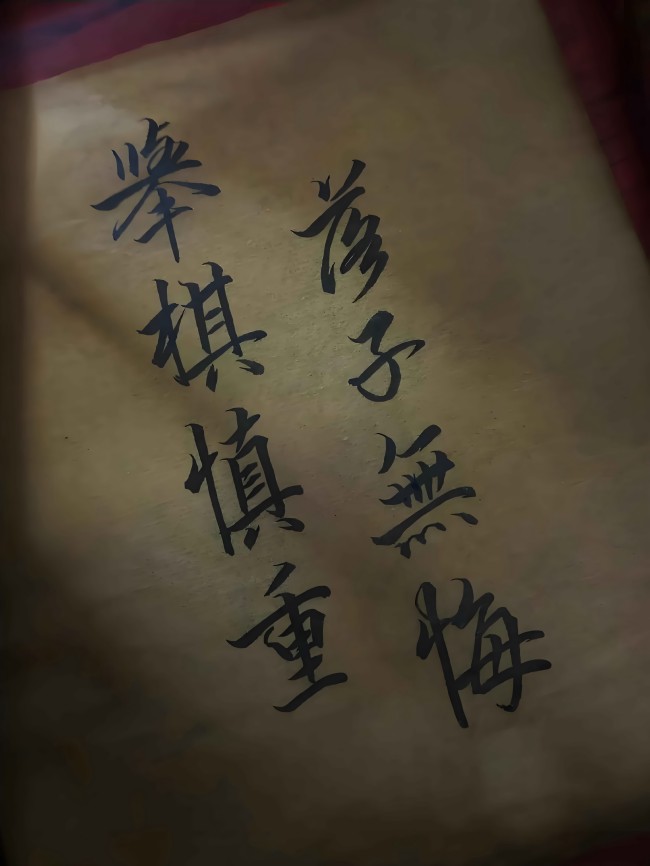 舉棋慎重
落子無悔